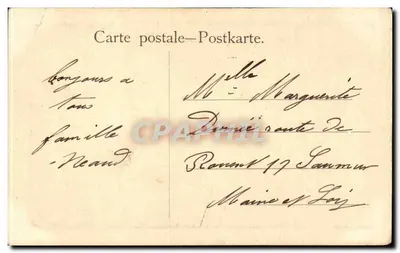 Carte postale—Postkarte.
bonjours a
tous
famille
Neaud
Melle Marguerite
route de
Rouen 17 Saumur
Maine et Loir
CPAPHIL